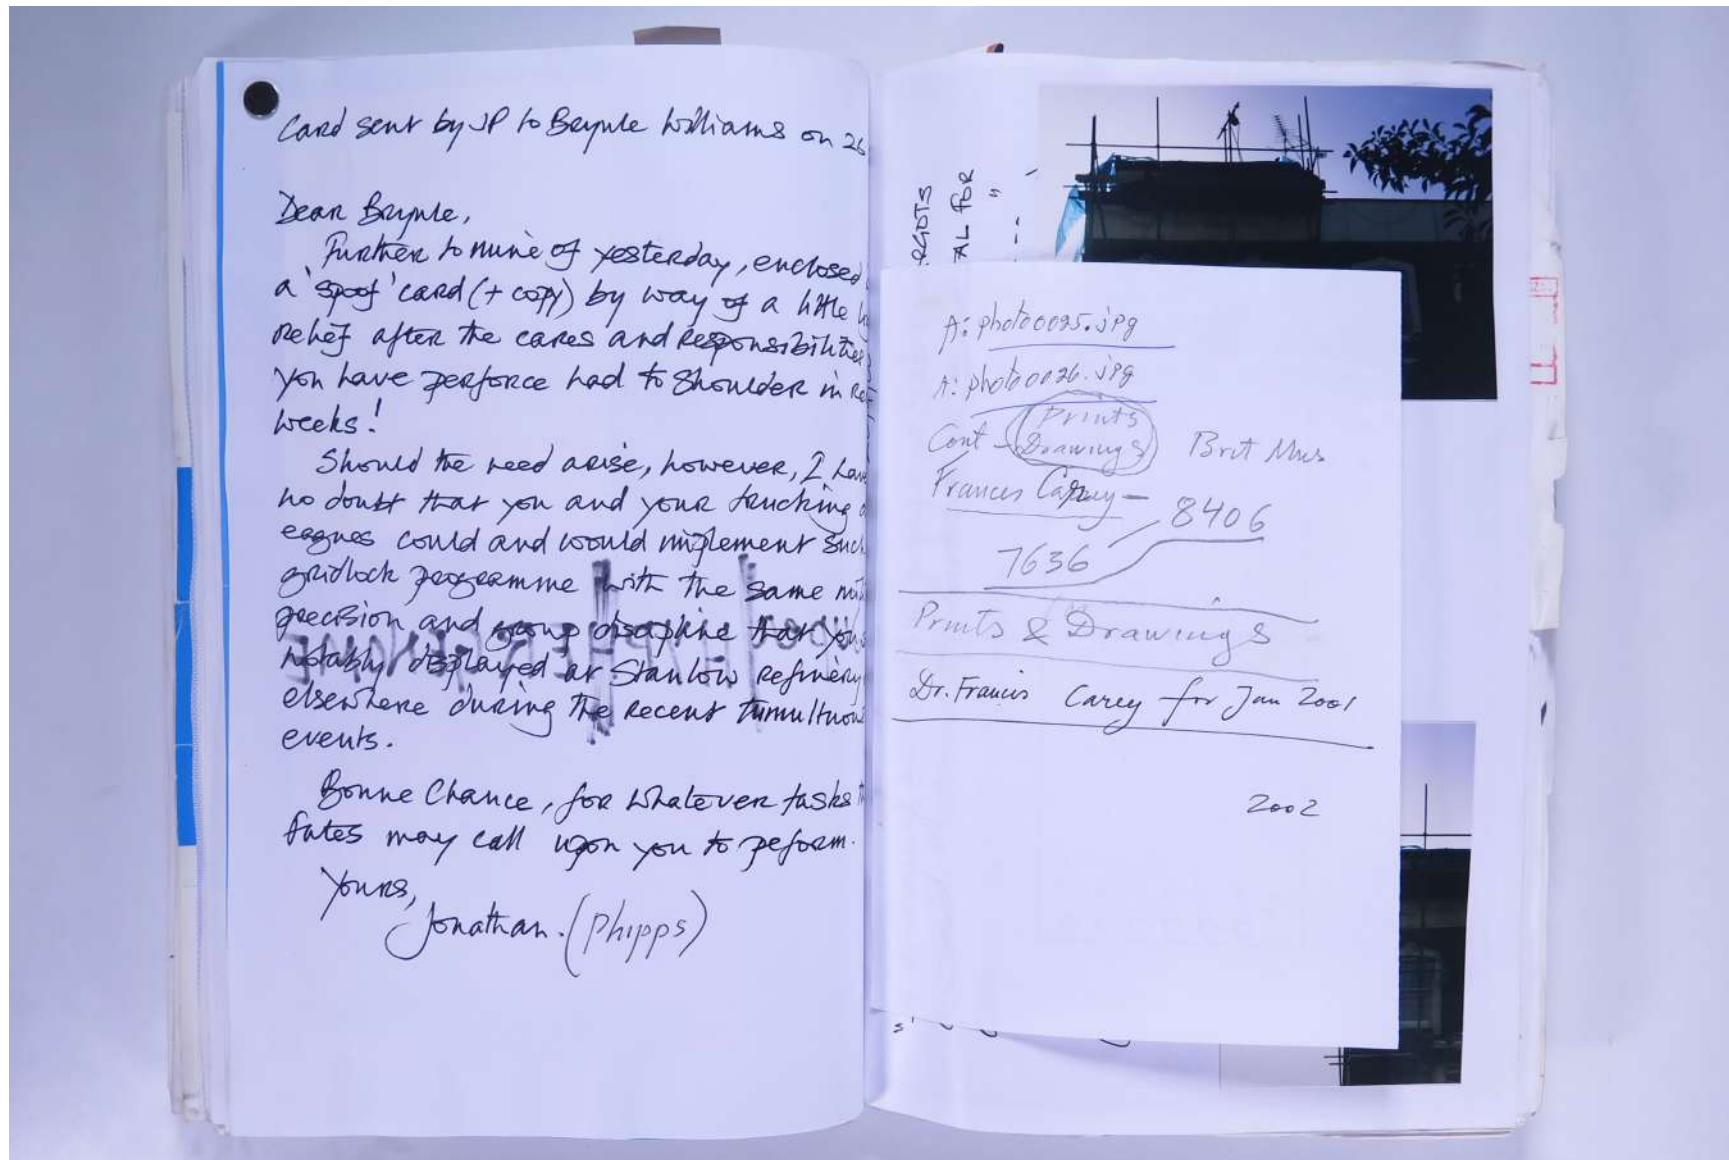 Card sent by JP to Brynle Williams on 26
Dear Brynle,
Further to mine of yesterday, enclosed
a 'spoof' card (+ copy) by way of a little
relief after the cares and responsibilities
you have perforce had to shoulder in re
weeks!
Should the need arise, however, I have
no doubt that you and your trucking
eagues could and would implement such
gridlock programme with the same
precision and group discipline that you
notably displayed at Stanlow refinery
elsewhere during the recent tumultuou
events.
Bonne Chance, for whatever tasks
fates may call upon you to peform.
Yours,
Jonathan. (Phipps)
RGOTS
TAL FOR
A: photo0025.jpg
A: photo0026.jpg
Prints
Cont - Drawings Brit Mus
Frances Carey -
8406
7636
Prints & Drawings
Dr. Francis Carey for Jan 2001
2002